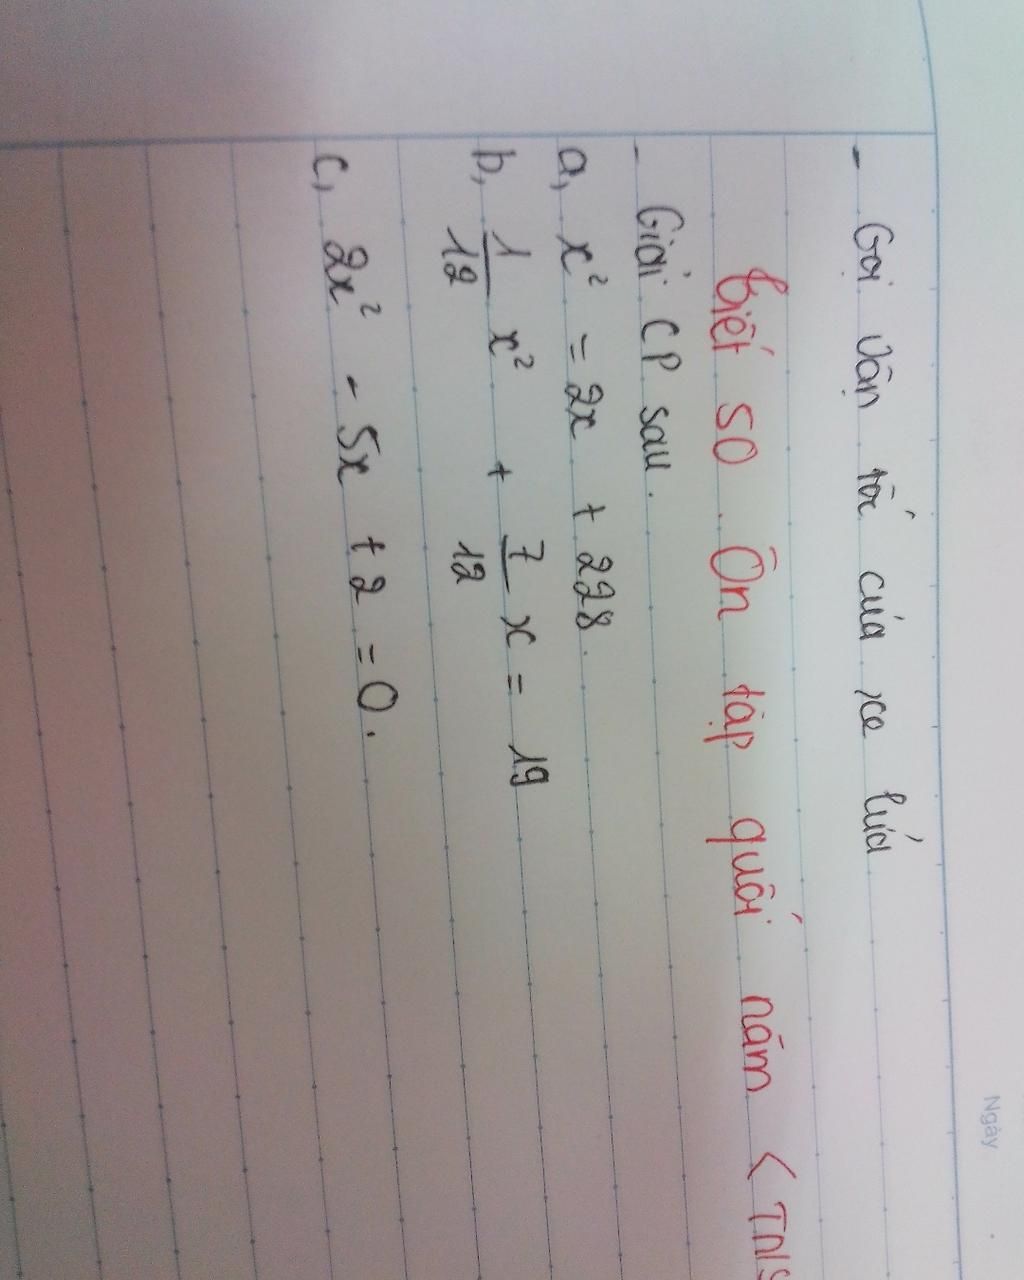 Ngày
- Gọi vận tốc của xe lửa
Tiết 50. Ôn tập quối năm <TNIS
- Giải CP sau.
a, x² = 2x + 228.
b, 1/12 x² + 7/12 x = 19
c, 2x² - 5x + 2 = 0.